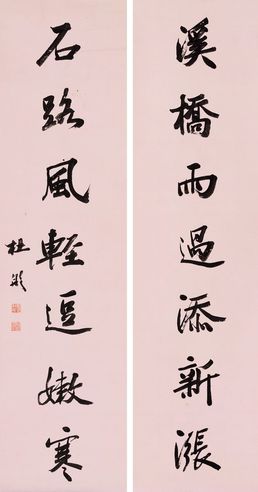 溪橋雨過添新漲
石路風輕逗嫩寒